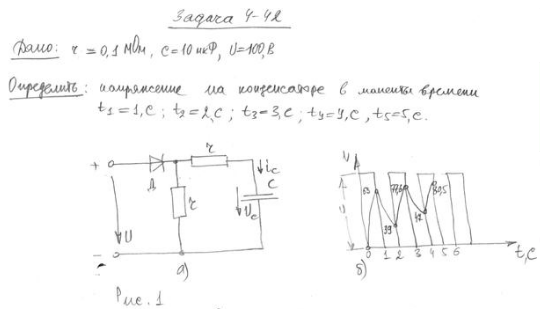 Задача 4-42
Дано: r = 0,1 МОм, С = 10 мкФ, U = 100, В
Определить: напряжение на конденсаторе в моменты времени
t1 = 1, С ; t2 = 2, С ; t3 = 3, С ; t4 = 4, С , t5 = 5, С.
+
Д
r
r
ic
C
Uc
U
-
а)
U
U
63
77,6
80,5
39
0 1 2 3 4 5 6
t, С
б)
Рис. 1